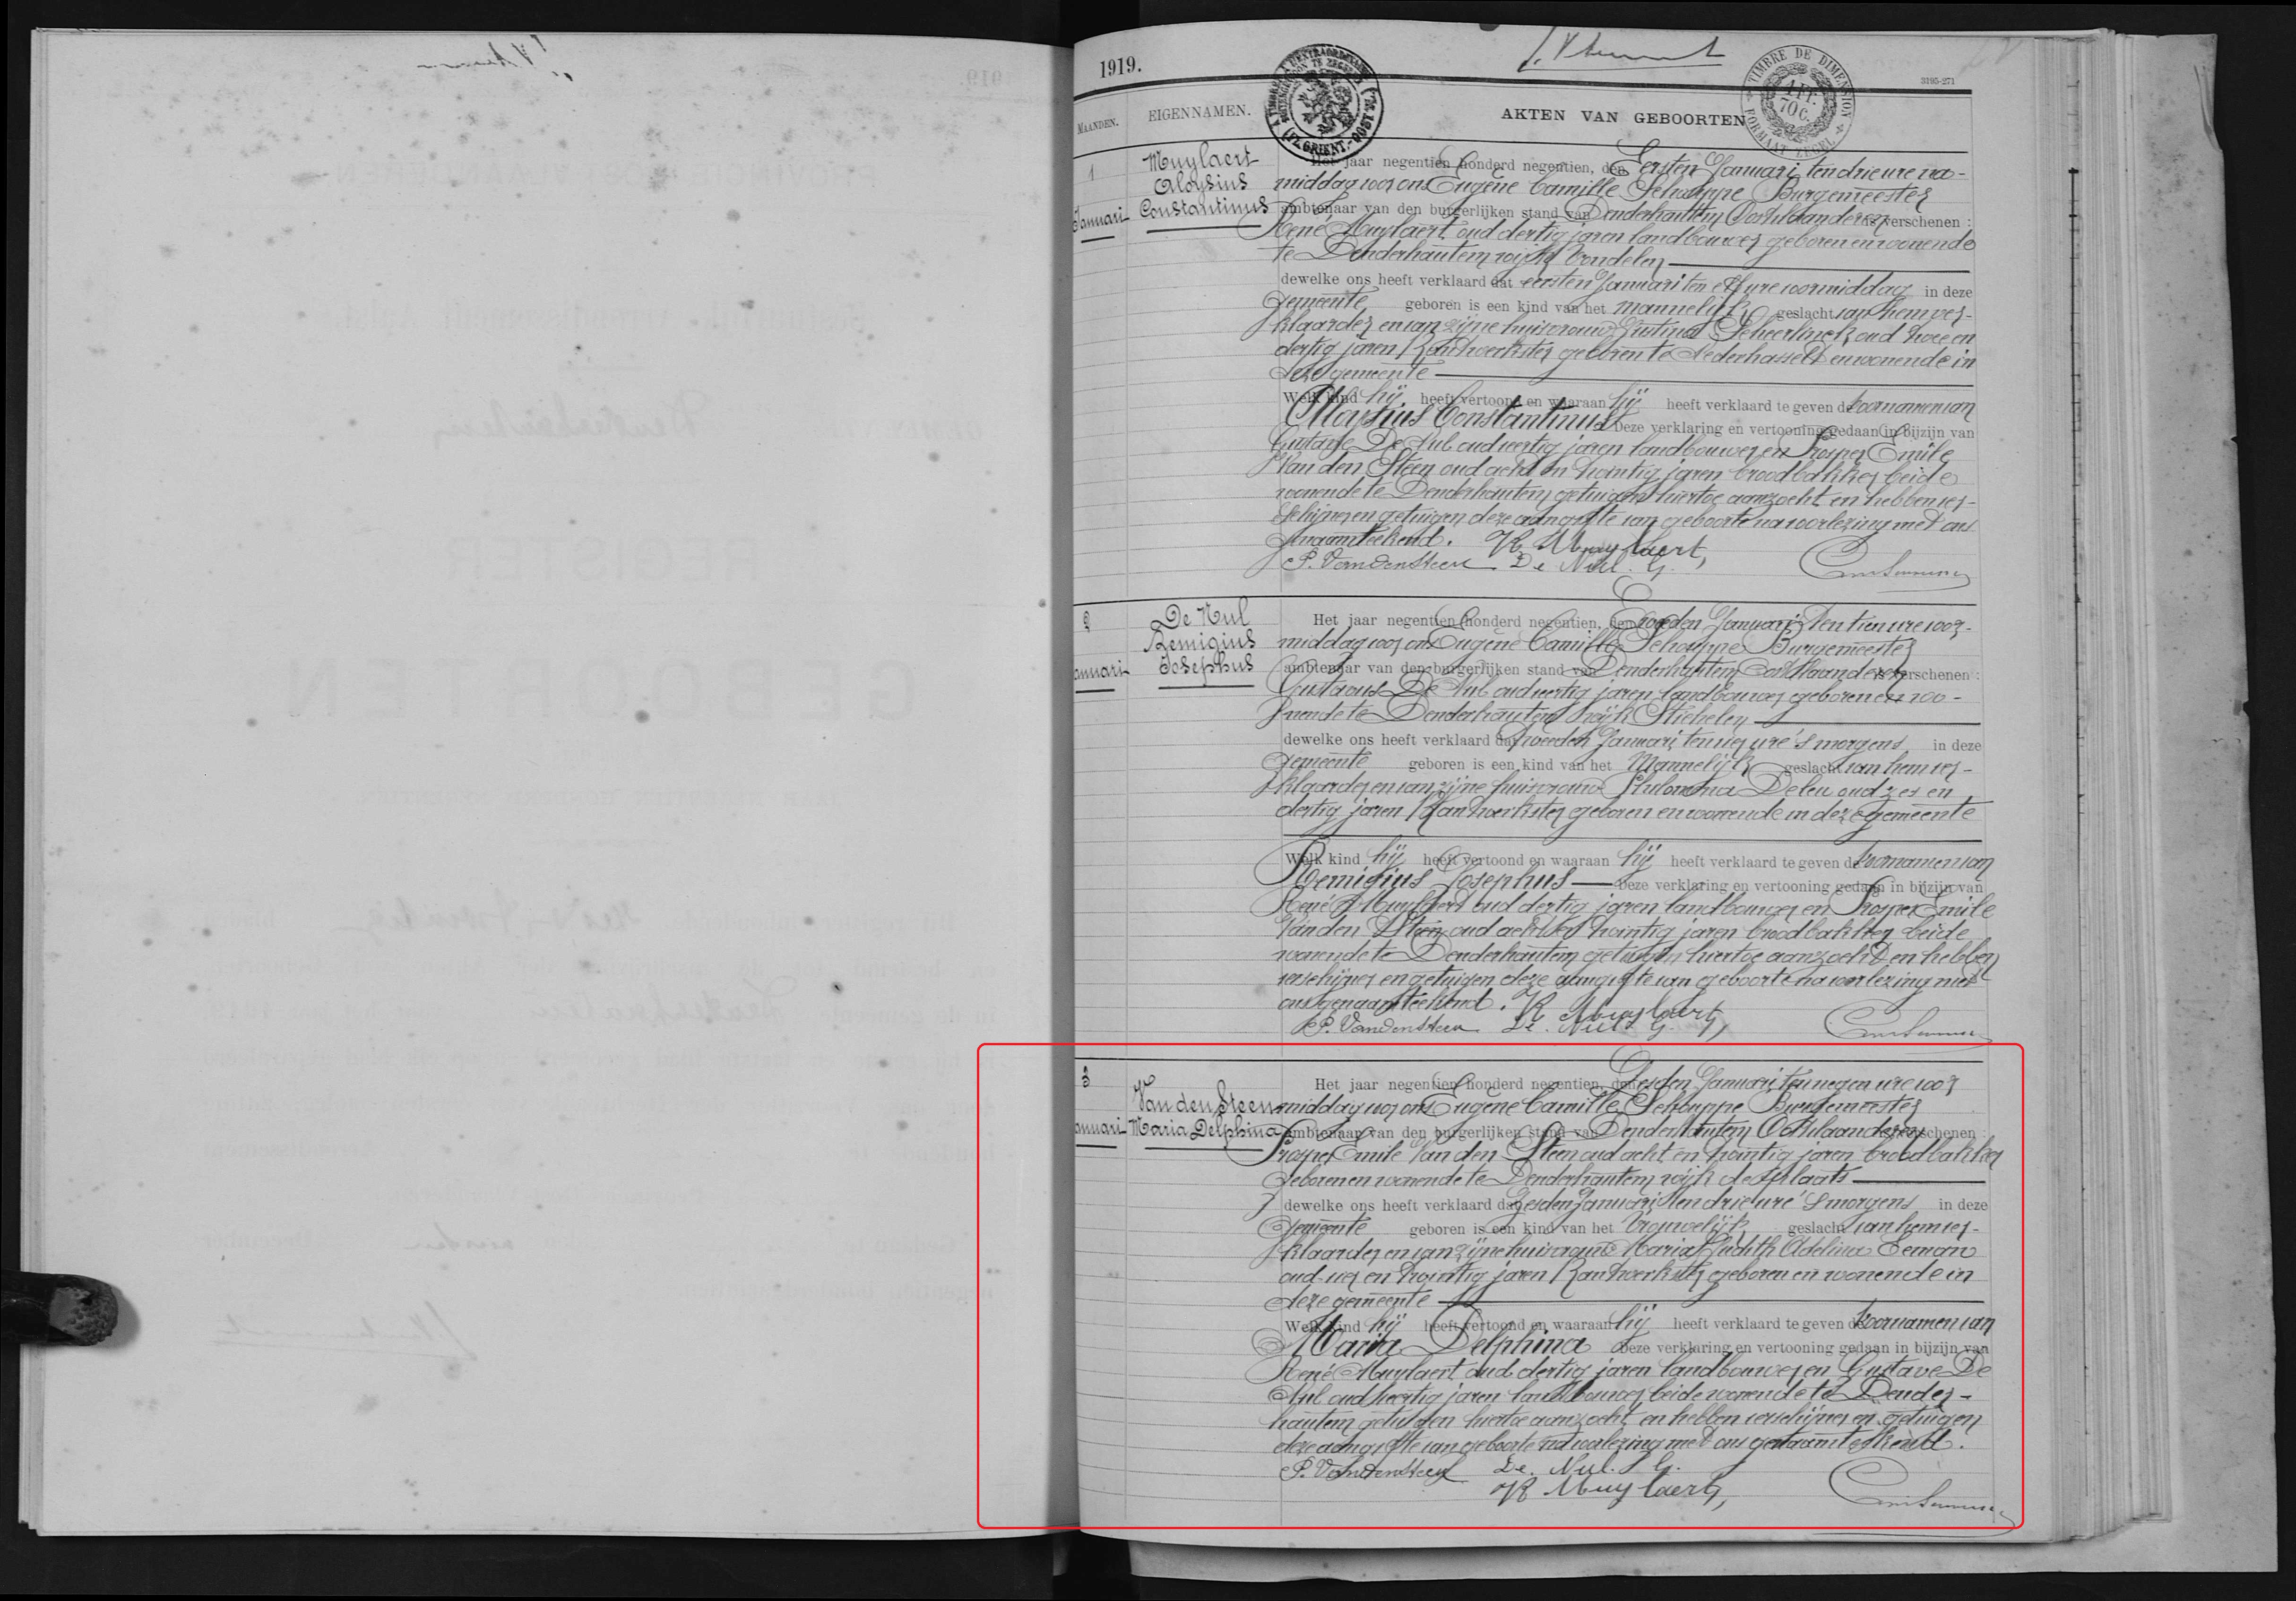 1919.
3195-271
TIMBRE DE DIMENSION
1 FR.
70 C.
FORMAAT ZEGEL
MAANDEN.
EIGENNAMEN.
AKTEN VAN GEBOORTEN
1
Januari
Muylaert
Aloysius
Constantinus
Het jaar negentien honderd negentien, den Eersten Januari ten drie ure na-
middag voor ons Eugène Camille Schouppe Burgemeester
ambtenaar van den burgerlijken stand van Denderhautem Oostvlaanderen is verschenen :
René Muylaert oud dertig jaren landbouwer geboren en wonende
te Denderhautem wijk Vondelen
dewelke ons heeft verklaard dat eersten Januari ten elf ure voormiddag in deze
gemeente geboren is een kind van het mannelijk geslacht van hem ver-
klaarder en van zijne huisvrouw Justina Scheerlinck oud twee en
dertig jaren Kantwerkster geboren te Nederhasselt en wonende in
deze gemeente
Welk kind hij heeft vertoond en waaraan hij heeft verklaard te geven de voornamen van
Aloysius Constantinus Deze verklaring en vertooning gedaan in bijzijn van
Gustave De Nul oud veertig jaren landbouwer en Prosper Emile
Van den Steen oud acht en twintig jaren broodbakker beide
wonende te Denderhautem getuigen hiertoe aanzocht en hebben ver-
schijner en getuigen deze aangifte van geboorte na voorlezing met ons
genaamteekend. R Muylaert
P. Vandensteen De Nul. G.
2
Januari
De Nul
Remigius
Josephus
Het jaar negentien honderd negentien, den tweeden Januari ten tien ure voor-
middag voor ons Eugène Camille Schouppe Burgemeester
ambtenaar van den burgerlijken stand van Denderhautem Oostvlaanderen is verschenen :
Gustavus De Nul oud veertig jaren landbouwer geboren en wo-
nende te Denderhautem wijk Stichelen
dewelke ons heeft verklaard dat tweeden Januari ten vier ure 's morgens in deze
gemeente geboren is een kind van het Mannelijk geslacht van hem ver-
klaarder en van zijne huisvrouw Philomena Deleu oud zes en
dertig jaren Kantwerkster geboren en wonende in deze gemeente
Welk kind hij heeft vertoond en waaraan hij heeft verklaard te geven de voornamen van
Remigius Josephus Deze verklaring en vertooning gedaan in bijzijn van
René Muylaert oud dertig jaren landbouwer en Prosper Emile
Van den Steen oud acht en twintig jaren broodbakker beide
wonende te Denderhautem getuigen hiertoe aanzocht en hebben
verschijner en getuigen deze aangifte van geboorte na voorlezing met
ons genaamteekend. R Muylaert
P. Vandensteen De. Nul G.
3
Januari
Van den Steen
Maria Delphina
Het jaar negentien honderd negentien, den Zesden Januari ten negen ure voor
middag voor ons Eugène Camille Schouppe Burgemeester
ambtenaar van den burgerlijken stand van Denderhautem Oostvlaanderen is verschenen :
Prosper Emile Van den Steen oud acht en twintig jaren broodbakker
geboren en wonende te Denderhautem wijk de plaats
dewelke ons heeft verklaard dat zesden Januari ten drie ure 's morgens in deze
gemeente geboren is een kind van het Vrouwelijk geslacht van hem ver-
klaarder en van zijne huisvrouw Maria Judith Adelina Eeman
oud vier en twintig jaren Kantwerkster geboren en wonende in
deze gemeente
Welk kind hij heeft vertoond en waaraan hij heeft verklaard te geven de voornamen van
Maria Delphina Deze verklaring en vertooning gedaan in bijzijn van
René Muylaert oud dertig jaren landbouwer en Gustave De
Nul oud veertig jaren landbouwer beide wonende te Dender-
hautem getuigen hiertoe aanzocht en hebben verschijner en getuigen
deze aangifte van geboorte na voorlezing met ons genaamteekend.
P. Vandensteen De. Nul. G.
R Muylaert